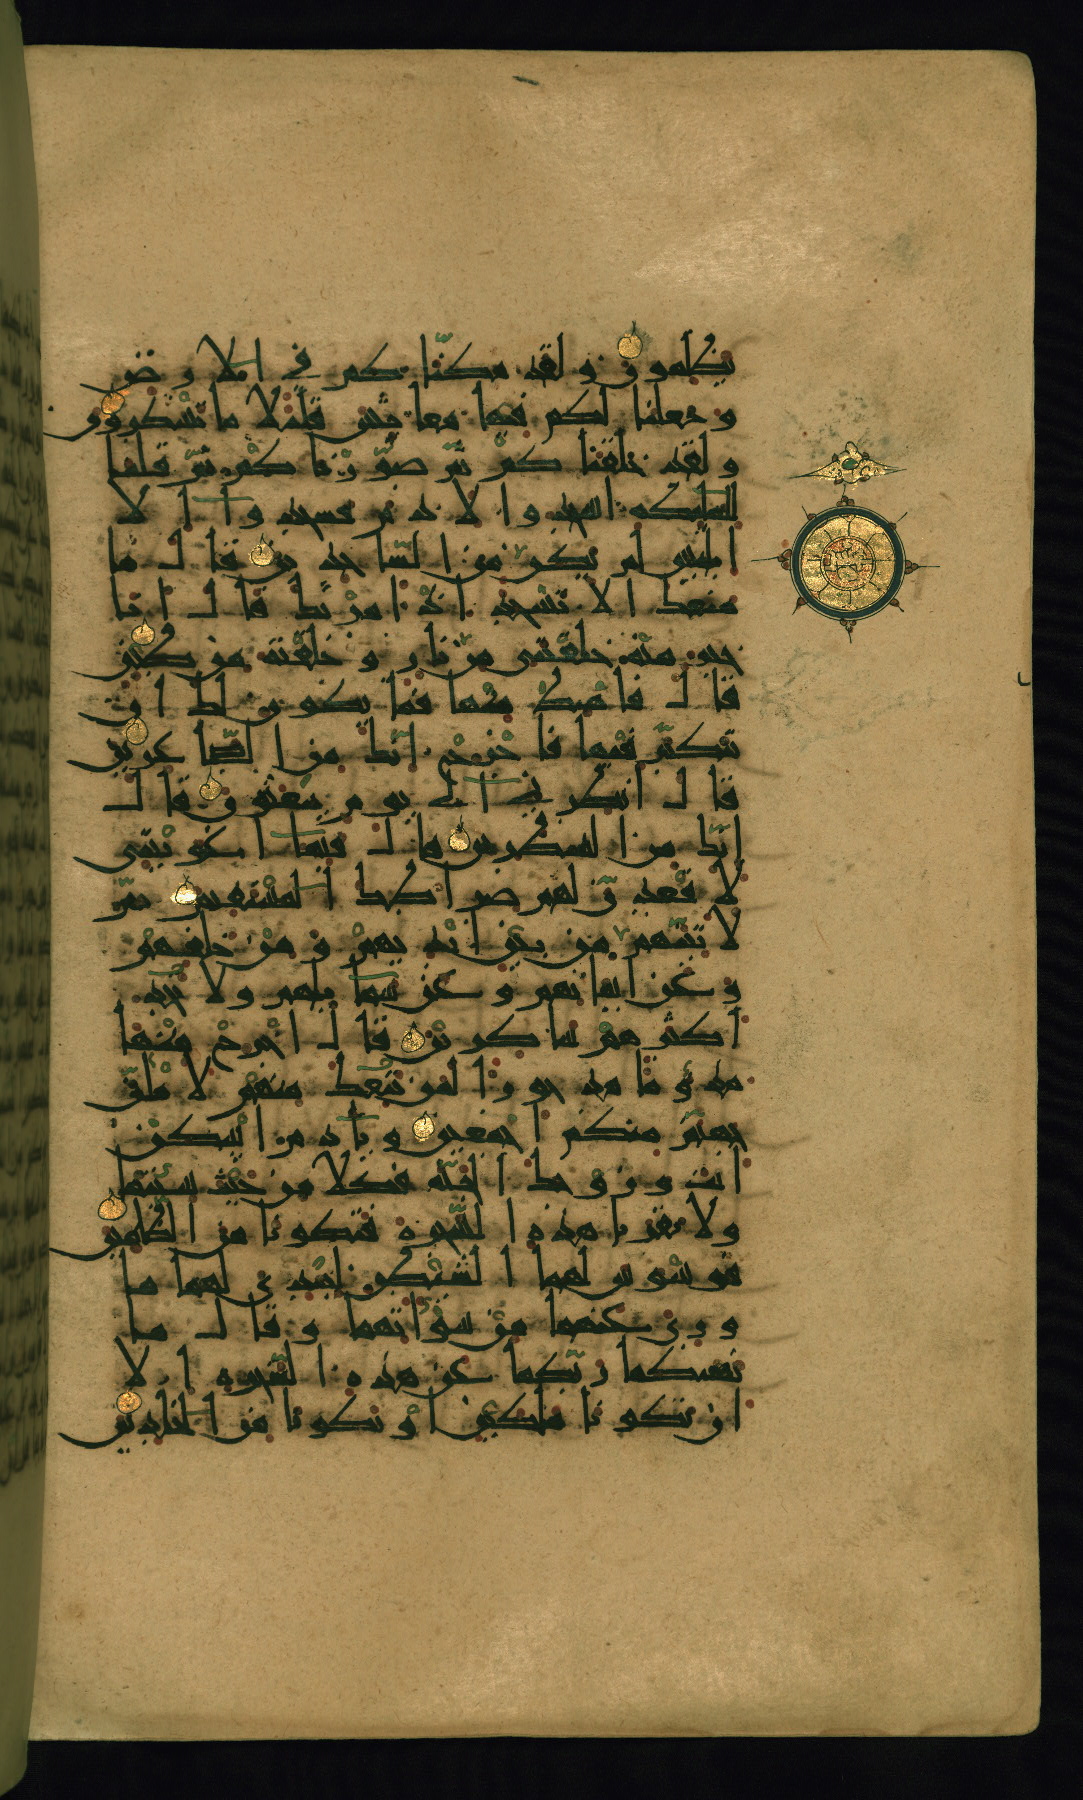 يظلمون ولقد مكنا كم في الا رض
وجعلنا لكم فيها معايش قليلا ما تشكرون
ولقد خلقنا كم ثم صور نا كم ثم قلنا
للملئكة اسجدوا لا د م فسجدوا ا لا
ابليس لم يكن من ا لسا جد ين قا ل ما
منعك ا لا تسجد ا ذ ا مر تك قا ل ا نا
خير منه خلقتني من نا ر و خلقته من طين
قا ل فا هبط منها فما يكو ن لك ا ن
تتكبر فيها فا خر ج ا نك من ا لصا غر ين
قا ل ا نظر ني ا لى يو م يبعثو ن قا ل
ا نك من ا لمنظر ين قا ل فبما ا غو يتني
لا قعد ن لهم صر ا طك ا لمستقيم ثم
لا تينهم من بين ا يد يهم و من خلفهم
و عن ا يما نهم و عن شما ئلهم ولا تجد
ا كثر هم شا كر ين قا ل ا خر ج منها
مذ ؤ ما مد حو ر ا لمن تبعك منهم لا ملئن
جهنم منكم ا جمعين و يا اد م ا سكن
ا نت و ز و جك ا لجنة فكلا من حيث شئتما
ولا تقر با هذ ه ا لشجر ة فتكو نا من ا لظالمين
فو سو س لهما ا لشيطن ليبد ي لهما ما
و و ر ي عنهما من سو ا تهما و قا ل ما
نهيكما ر بكما عن هذ ه ا لشجر ة ا لا
ا ن تكو نا ملكين ا و تكو نا من ا لخالدين